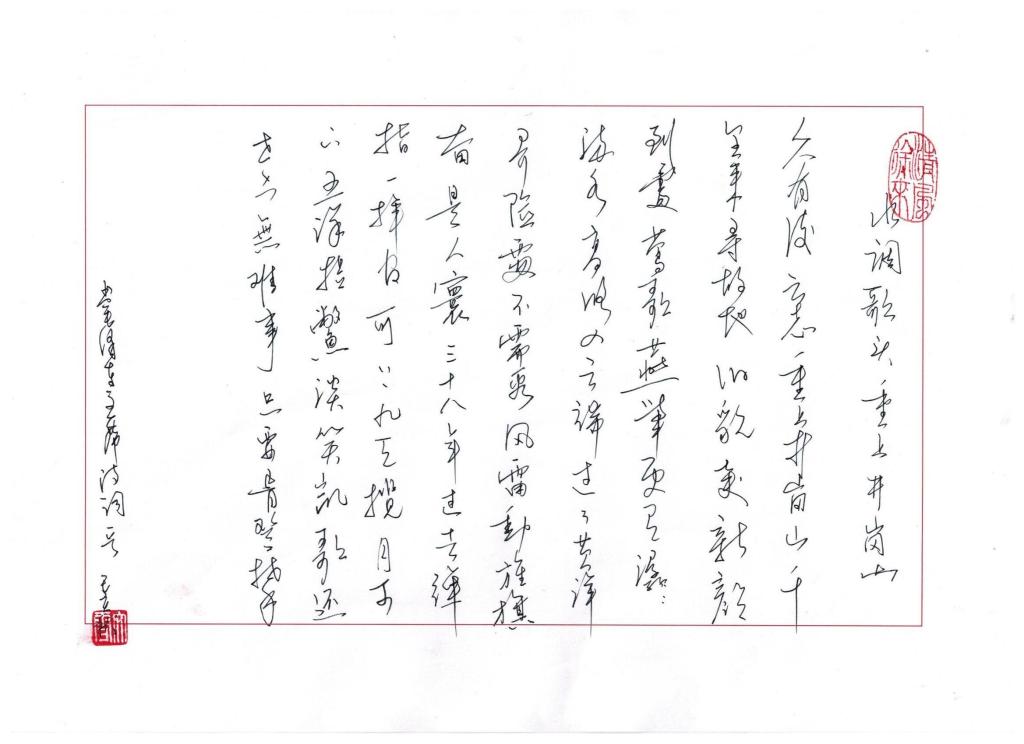 水调歌头重上井岗山
久有凌云志重上井岗山千
里来寻故地旧貌变新颜
到处莺歌燕舞更有潺〻
流水高路入云端过了黄洋
界险处不需看风雷動旌旗
奋是人寰三十八年过去弹
指一挥间可上九天揽月可
下五洋捉鳖谈笑凯歌还
世上無难事只要肯登攀
毛泽东主席诗词一首
清風徐来